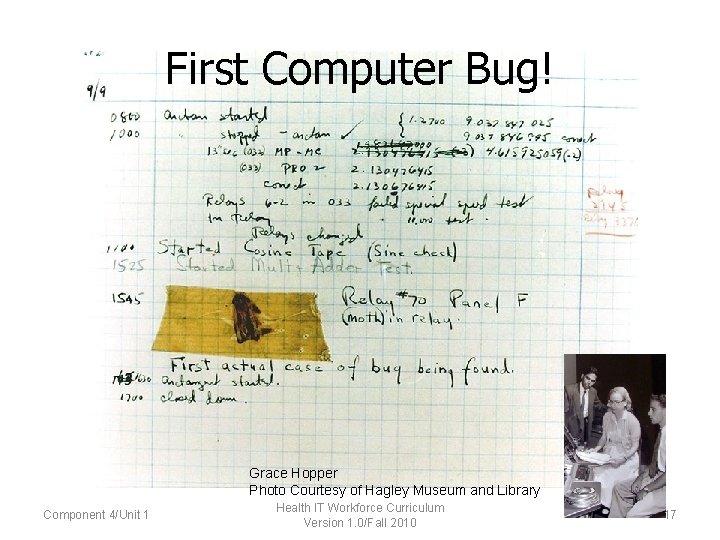 First Computer Bug!
9/9
0800 antan started
1000 " stopped - antan ✓ { 1.2700 9.037 847 025
9.037 846 995 correct
13"sec (032) MP - MC 2.130476415 (-3) 4.615925059(-2)
(033) PRO 2 2.130476415
correct 2.130676415
Relays 6-2 in 033 failed special speed test
in Relay " 10.000 test.
Relay
2145
Relay 3370
Relays changed
1100 Started Cosine Tape (Sine check)
1525 Started Mult+Adder Test.
1545 Relay #70 Panel F
(moth) in relay.
First actual case of bug being found.
1630 antangent started.
1700 closed down.
Grace Hopper
Photo Courtesy of Hagley Museum and Library
Component 4/Unit 1
Health IT Workforce Curriculum
Version 1.0/Fall 2010
17